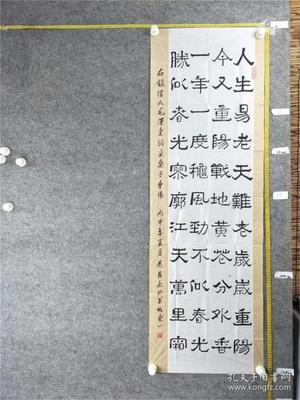 人生易老天難老歲歲重陽
今又重陽戰地黃花分外香
一年一度穐風勁不似春光
勝似春光寥廓江天萬里霜
右錄偉人毛澤東詞采桑子重陽 丙申年夏月
孔夫子旧书网